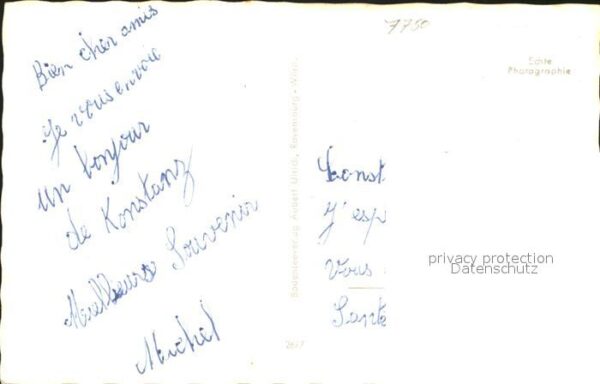 Bien cher amis
Je vous envoie
un bonjour
de Konstanz
Meilleurs Souvenir
Michel
7750
Echte
Photographie
Const
J'esp
Vous
Sante
privacy protection
Datenschutz